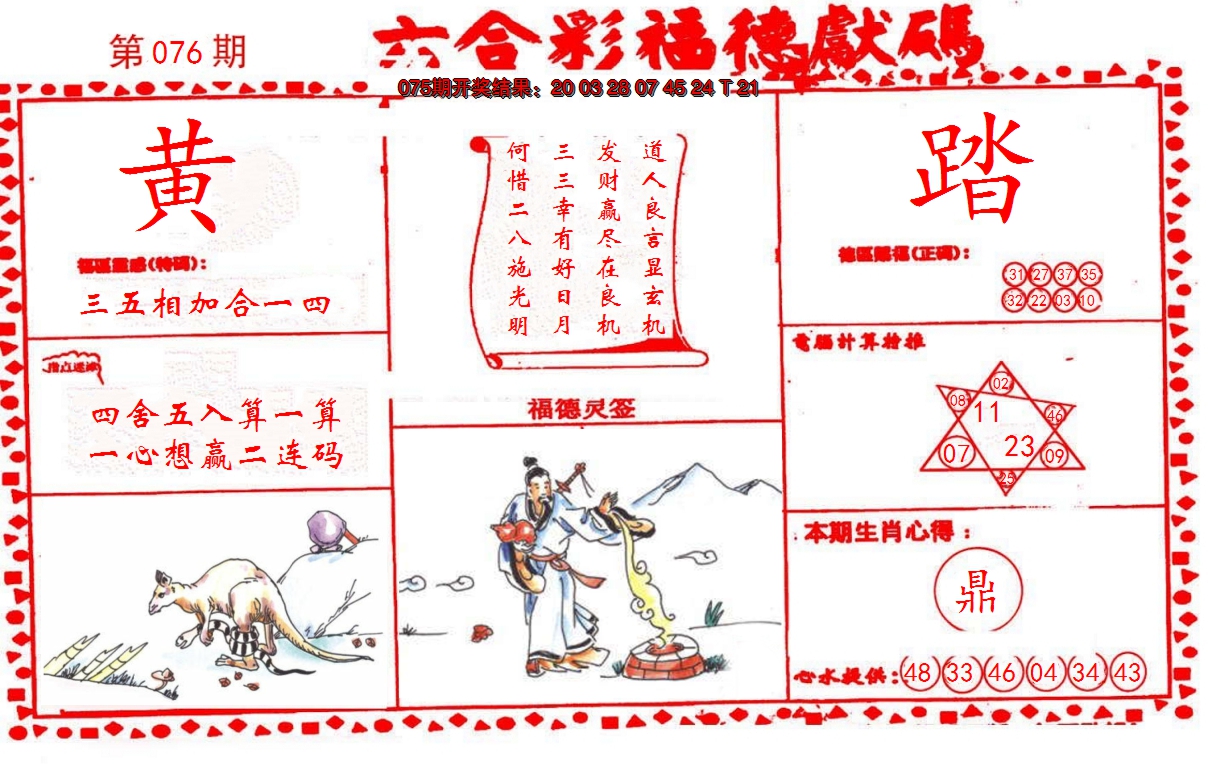 第 076 期
六合彩福德獻碼
075期开奖结果：20 03 28 07 45 24 T 21
黄
福區靈感(特碼)：
三五相加合一四
指点迷津
四舍五入算一算
一心想赢二连码
道人良言显玄机
发财赢尽在良机
三三幸有好日月
何惜二八施光明
福德灵签
踏
德區賜福(正碼)：
31 27 37 35
32 22 03 10
電腦計算推
02
08 11 46
07 23 09
25
本期生肖心得：
鼎
心水提供：48 33 46 04 34 43